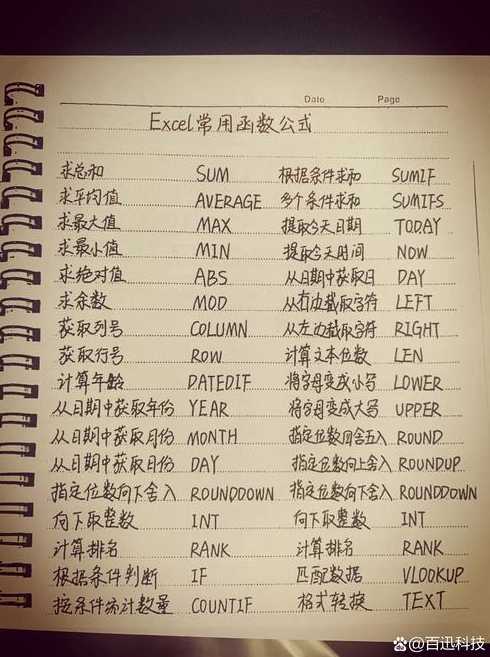 Date Page
Excel常用函数公式
求总和 SUM 根据条件求和 SUMIF
求平均值 AVERAGE 多个条件求和 SUMIFS
求最大值 MAX 提取今天日期 TODAY
求最小值 MIN 提取今天时间 NOW
求绝对值 ABS 从日期中获取日 DAY
求余数 MOD 从右边截取字符 LEFT
获取列号 COLUMN 从左边截取字符 RIGHT
获取行号 ROW 计算文本位数 LEN
计算年龄 DATEDIF 将字母变成小写 LOWER
从日期中获取年份 YEAR 将字母变成大写 UPPER
从日期中获取月份 MONTH 指定位数四舍五入 ROUND
从日期中获取日份 DAY 指定位数向上舍入 ROUNDUP
指定位数向下舍入 ROUNDDOWN 指定位数向下舍入 ROUNDDOWN
向下取整数 INT 向下取整数 INT
计算排名 RANK 计算排名 RANK
根据条件判断 IF 匹配数据 VLOOKUP
按条件统计数量 COUNTIF 格式转换 TEXT
百迅科技